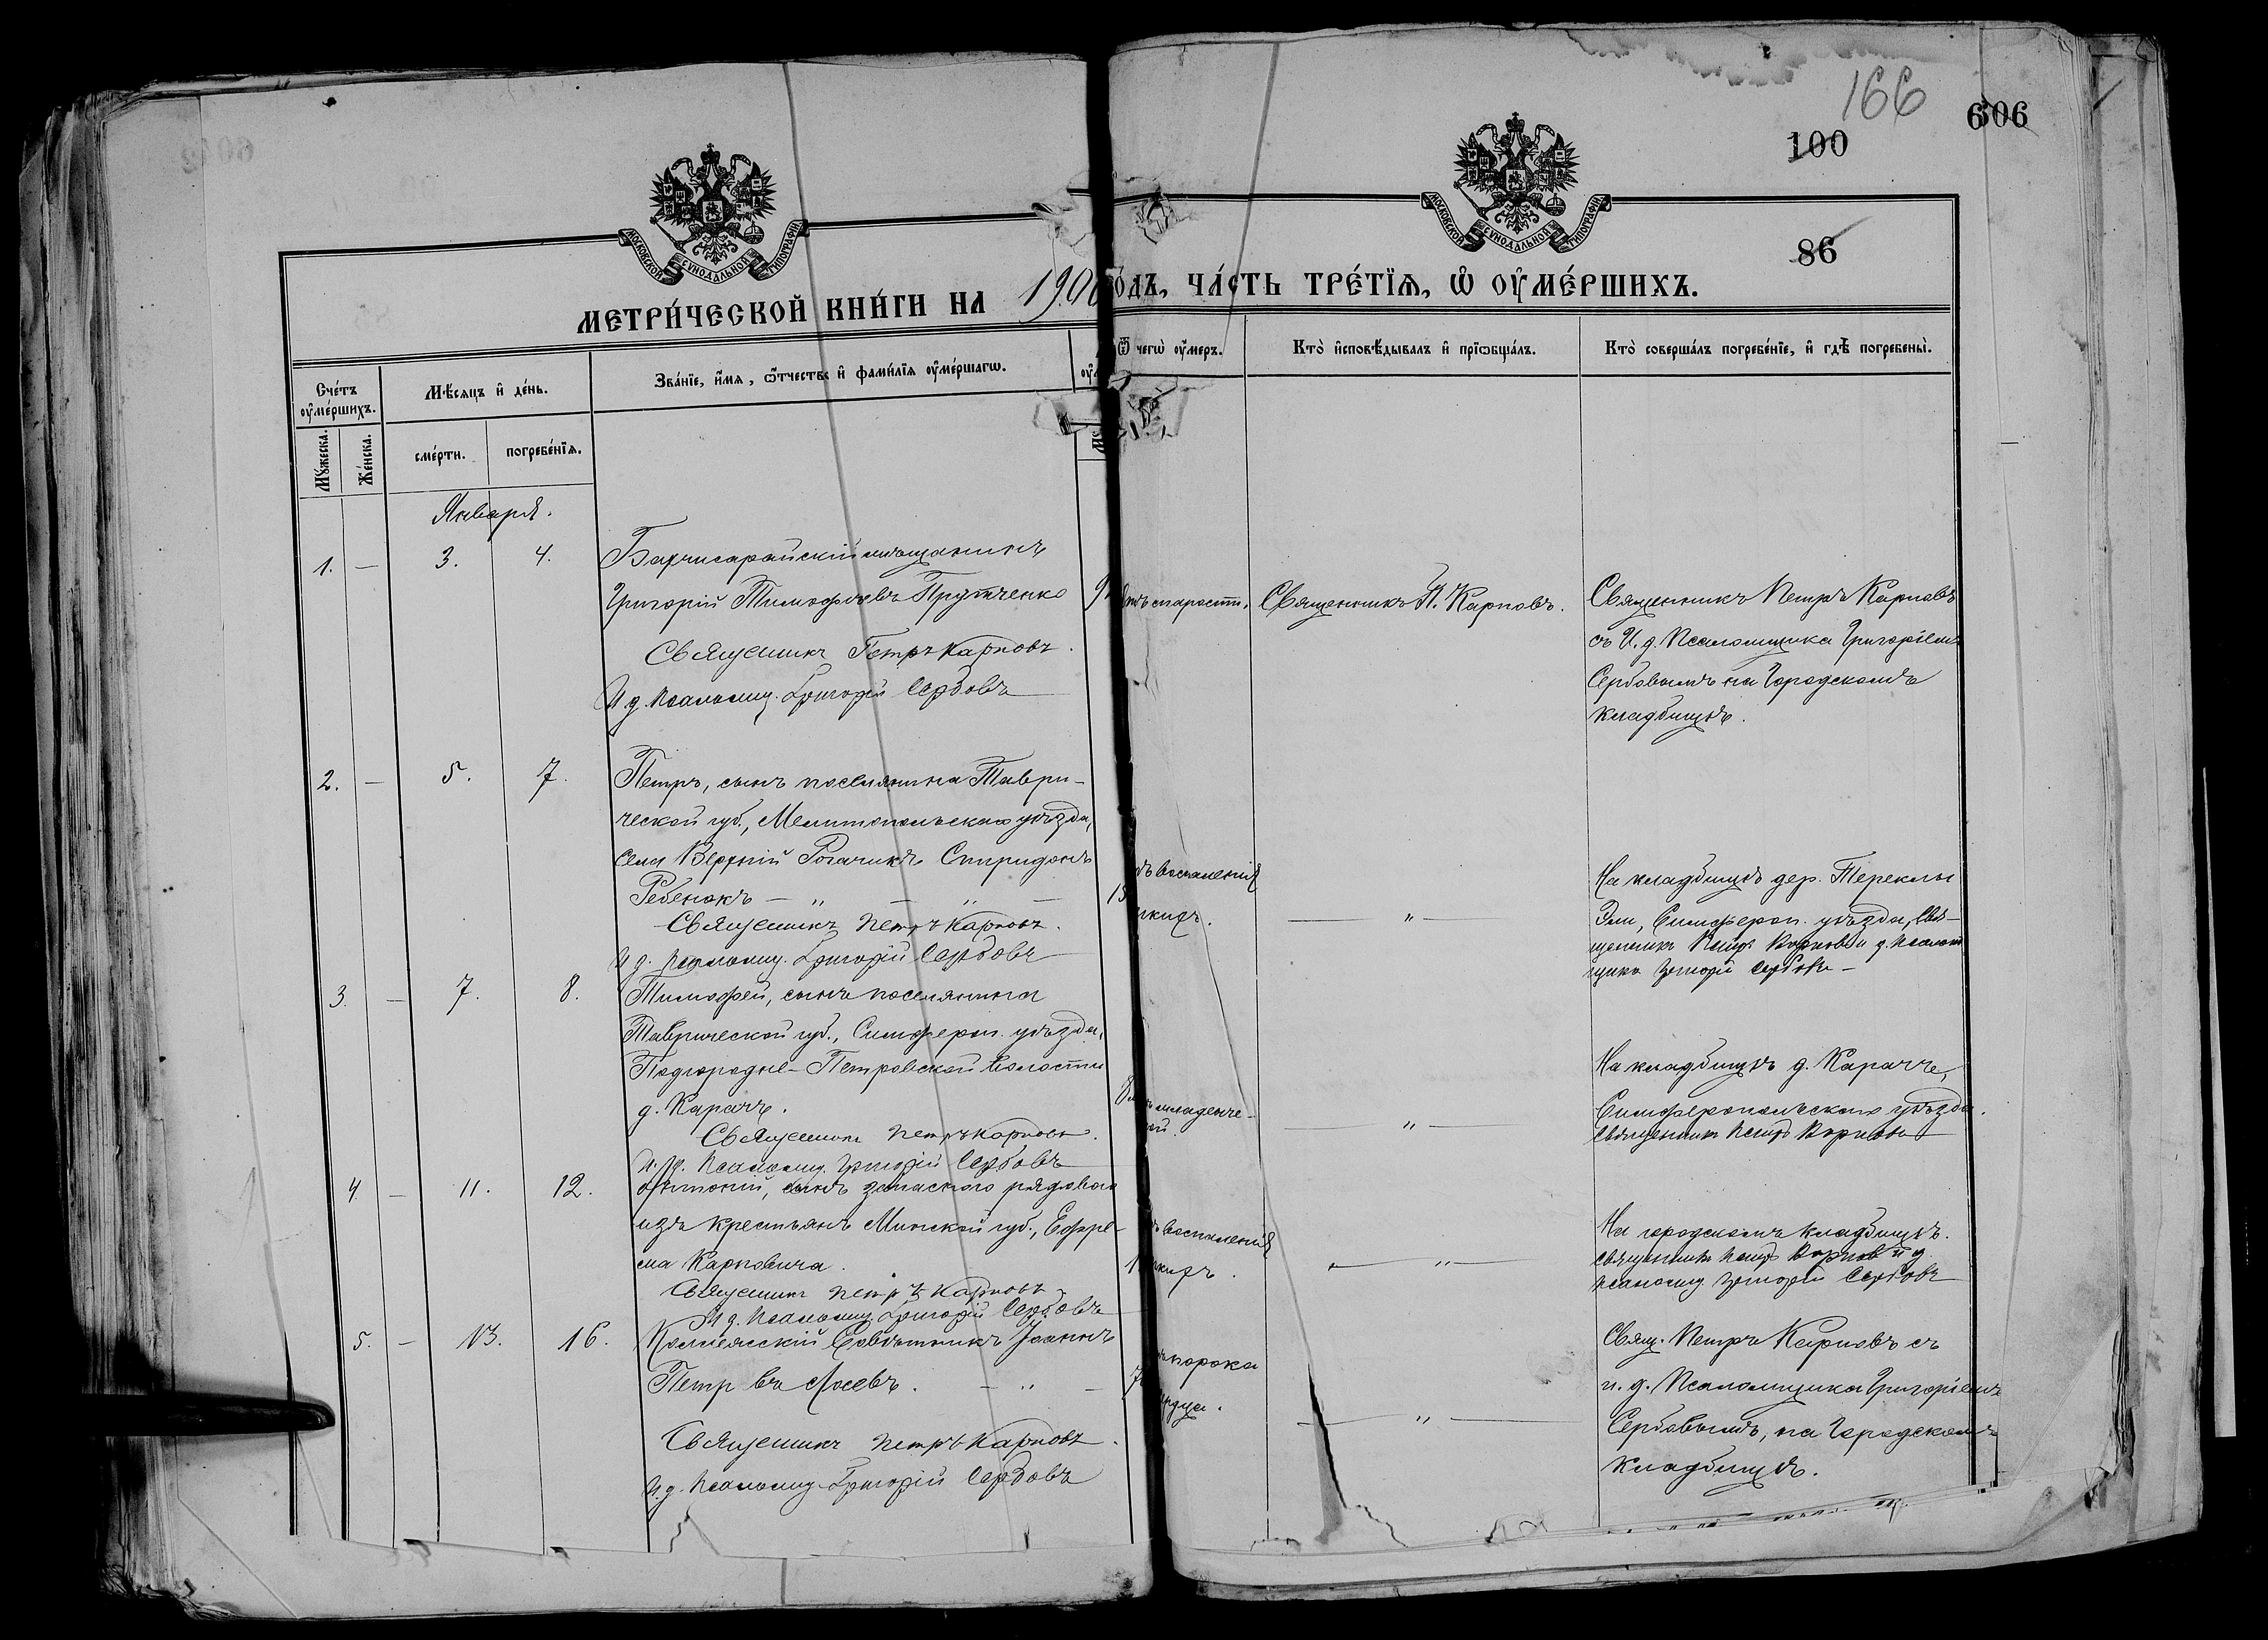 166
100
606
86
МОСКОВСКОЙ СѴНОДАЛЬНОЙ ТИПОГРАФІИ
МОСКОВСКОЙ СѴНОДАЛЬНОЙ ТИПОГРАФІИ
МЕТРИ́ЧЕСКОЙ КНИ́ГИ НА 190
ОДЪ, ЧА́СТЬ ТРЕ́ТЇѦ, Ѽ ОУ҆МЕ́РШИХЪ.
Сче́тъ оу҆ме́ршихъ.
Мꙋ́жеска.
Же́нска.
Мѣ́сѧцъ и҆ де́нь.
сме́рти.
погребе́нїѧ.
Зва́нїе, и҆́мѧ, ѻ҆́тчество и҆ фами́лїѧ оу҆ме́ршагѡ.
Ѿ чегѡ̀ оу҆́меръ.
Кто̀ и҆сповѣ́дывалъ и҆ прїѡбща́лъ.
Кто̀ соверша́лъ погребе́нїе, и҆ гдѣ̀ погребены̀.
Января.
1. — 3. 4.
Бахчисарайскій мѣщанинъ
Григорій Тимофѣевъ Прутченко
Священникъ Петръ Карповъ.
И д. псаломщ. Григорій Сербовъ
старости.
Священникъ П. Карповъ.
Священникъ Петръ Карповъ
съ И. д. Псаломщика Григоріемъ
Сербовымъ на Городскомъ
кладбищѣ.
2. — 5. 7.
Петръ, сынъ поселянина Таври-
ческой губ., Мелитопольскаго уѣзда,
села Верхній Рогачикъ Спиридонъ
Ребенокъ — „ — „ —
Священникъ Петръ Карповъ.
И д. псаломщ. Григорій Сербовъ
воспаленія
— „ —
На кладбищѣ дер. Тереклы
Эли, Симфероп. уѣзда, Свя-
щенникъ Петръ Карповъ и д. псалом
щика Григорій Сербовъ —
3. — 7. 8.
Тимофей, сынъ поселянина
Таврической губ., Симфероп. уѣзда,
Подгородне-Петровской волости
д. Карачъ.
Священникъ Петръ Карповъ.
И. д. Псаломщ. Григорій Сербовъ
младенче-
— „ —
На кладбищѣ д. Карачъ,
Симферопольскаго уѣзда.
Священникъ Петръ Карповъ
4 — 11. 12.
Антоній, сынъ запаснаго рядового
изъ крестьянъ Минской губ., Ефре-
ма Карповича.
Священникъ Петръ Карповъ
И д. Псаломщ. Григорій Сербовъ
воспаленія
— „ —
На городскомъ кладбищѣ.
Священникъ Петръ Карповъ и д.
псаломщ Григорій Сербовъ
5. — 13. 16.
Коллежскій Совѣтникъ Іоаннъ
Петр въ Лосевъ. — „ —
Священникъ Петръ Карповъ.
И.д. Псаломщ. Григорій Сербовъ
порока
— „ —
Свящ. Петръ Карповъ съ
и. д. Псаломщика Григоріемъ
Сербовымъ, на Городскомъ
кладбищѣ.